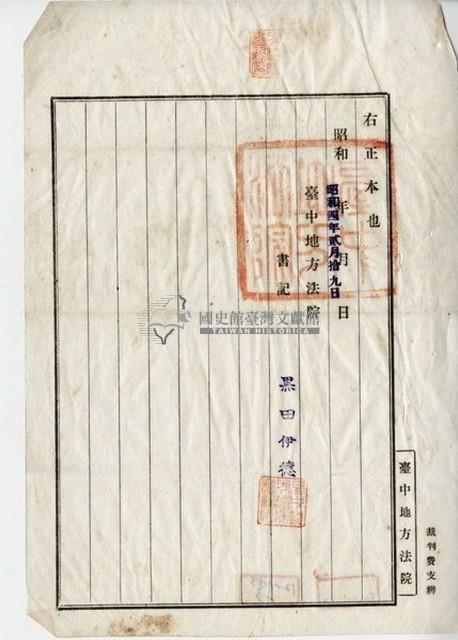 右正本也
昭和 年 月 日
昭和四年貳月拾九日
臺中地方法院
書記
黑田伊德
臺中地方法院
裁判費支辨
國史館臺灣文獻館
TAIWAN HISTORICA